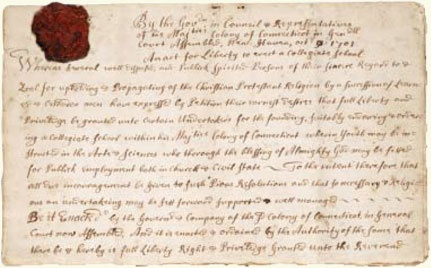 By the Govrn in Council & Representatives
of his Majties Colony of Connecticut in Genrll
Court Assembled, New Haven, oct 9 1701
An act for Liberty to erect a Collegiate School
Whereas several well disposed, and Publick Spirited Persons of their sincere Regard to &
Zeal for upholding & Propagating of the Christian Protestant Religion by a succession of Learn
ed & Orthodox men have expressed by Petition their earnest desires that full Liberty and
Priviledge be granted unto Certain Undertakers for the founding, suitably endowing & order
ing a Collegiate School within his Majties Colony of Connecticut wherin Youth may be in
structed in the Arts & Sciences who thorough the blessing of Almighty God may be fitted
for Publick employment both in Church & Civil State To the intent therefore that
all due incouragement be Given to such Pious Resolutions and that so necessary & Religi
ous an undertaking may be sett forward supported & well managed
Be it Enacted by the Govern & Company of the sd Colony of Connecticut in General
Court now Assembled, And it is enacted & ordained by the Authority of the same that
there be & hereby is full Liberty Right & Priviledge Granted unto the Reverend